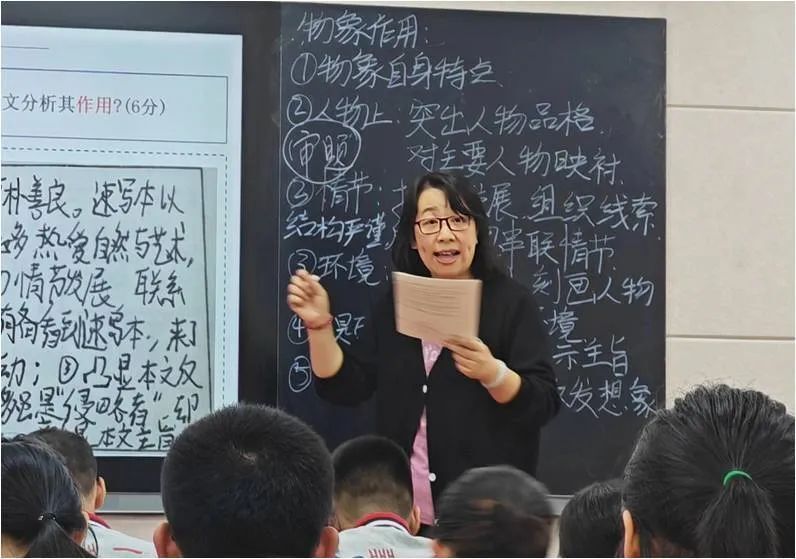 文分析其作用?(6分)
朴善良。速写本以
热爱自然与艺术,
情节发展 联系
看到速写本,
动;③凸显本文反
是“侵略者”
本文主旨
物象作用:
①物象自身特点
②人物上:突出人物品格
审题
对主要人物映衬
③情节: 展 组织线索
结构严谨, 串联情节
③环境: 刻画人物
④ 境
示主旨
⑤ 发想象